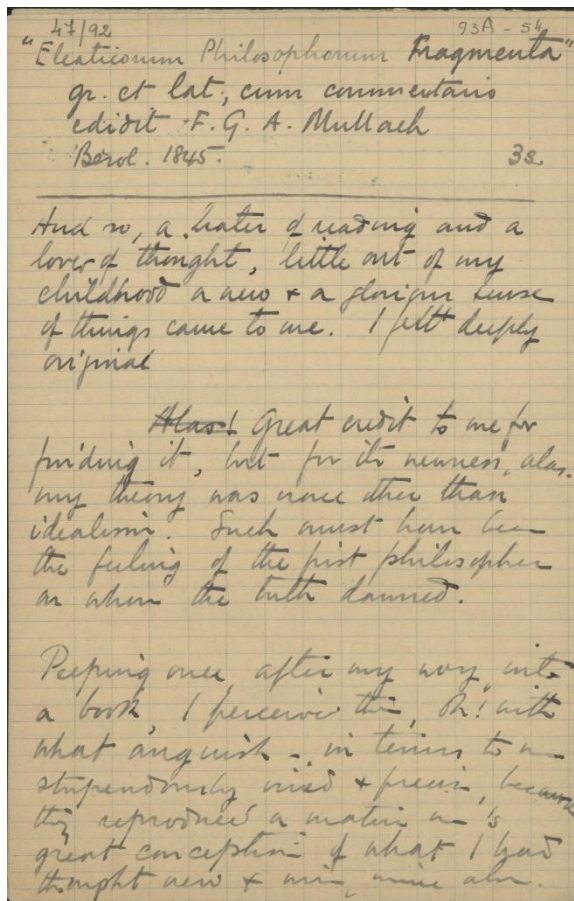 47/92 93A - 54
"Eleaticorum Philosophorum Fragmenta"
gr. et lat., cum commentario
edidit F. G. A. Mullach
Berol. 1845. 3s.
And so, a hater of reading and a
lover of thought, little out of my
childhood a new & a glorious sense
of things came to me. I felt deeply
original
Alas! Great credit to me for
finding it, but for its newness, alas.
my theory was none other than
idealism. Such must have been
the feeling of the first philosopher
on whom the truth dawned.
Peeping once, after my way, into
a book, I perceive this, Oh! with
what anguish - in terms to me
stupendously & precise, because
they reproduced a
great conception of what I had
thought new & mine, mine alone.